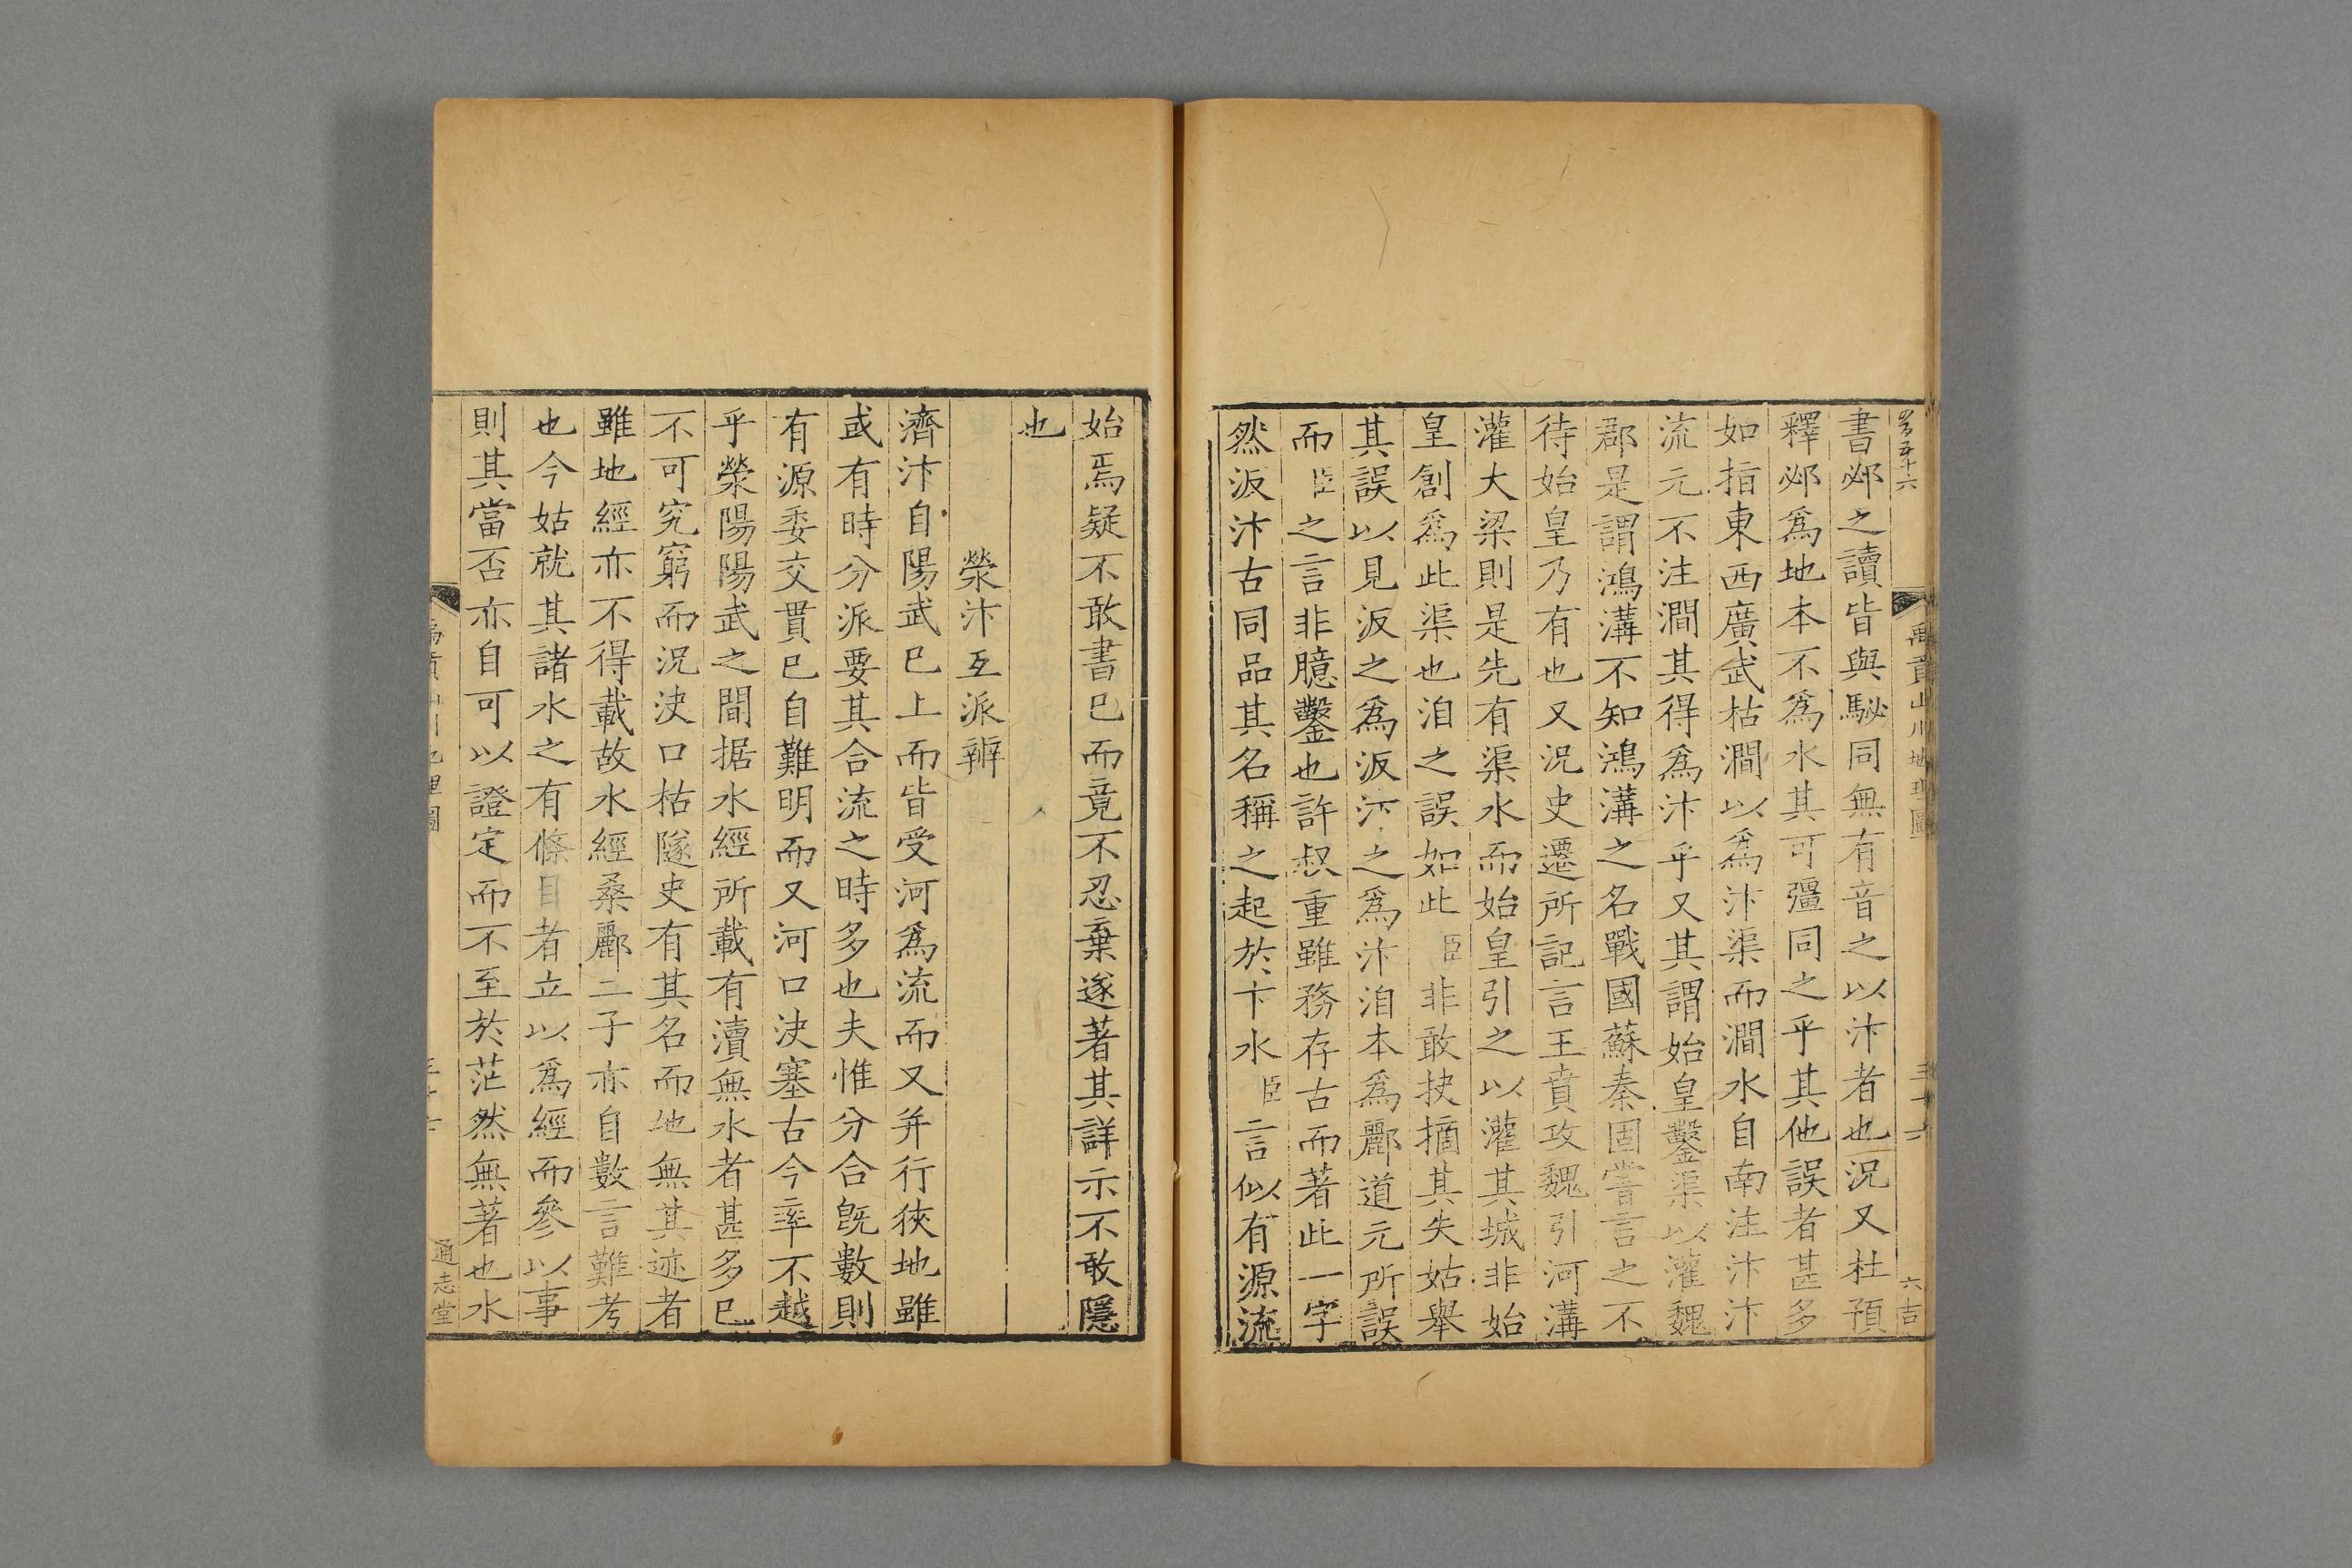 書邲之讀皆與駜同無有音之以汴者也況又杜預
釋邲爲地本不爲水其可彊同之乎其他誤者甚多
如指東西廣武枯澗以爲汴渠而澗水自南注汴汴
流元不注澗其得爲汴乎又其謂始皇鑿渠以灌魏
郡是謂鴻溝不知鴻溝之名戰國蘇秦固嘗言之不
待始皇乃有也又況史遷所記言王賁攻魏引河溝
灌大梁則是先有渠水而始皇引之以灌其城非始
皇創爲此渠也洎之誤如此臣非敢抉摘其失姑舉
其誤以見汳之爲汳汴之爲汴洎本爲酈道元所誤
而臣之言非臆鑿也許叔重雖務存古而著此一字
然汳汴古同品其名稱之起於卞水臣言似有源流
始焉疑不敢書已而竟不忍棄遂著其詳示不敢隱
也
滎汴互派辨
濟汴自陽武已上而皆受河爲流而又并行狹地雖
或有時分派要其合流之時多也夫惟分合旣數則
有源委交貫已自難明而又河口決塞古今率不越
乎滎陽陽武之間据水經所載有瀆無水者甚多已
不可究窮而況決口枯隧史有其名而地無其迹者
雖地經亦不得載故水經桑酈二子亦自數言難考
也今姑就其諸水之有條目者立以爲經而參以事
則其當否亦自可以證定而不至於茫然無著也水
禹貢山川地理圖
六吉
通志堂